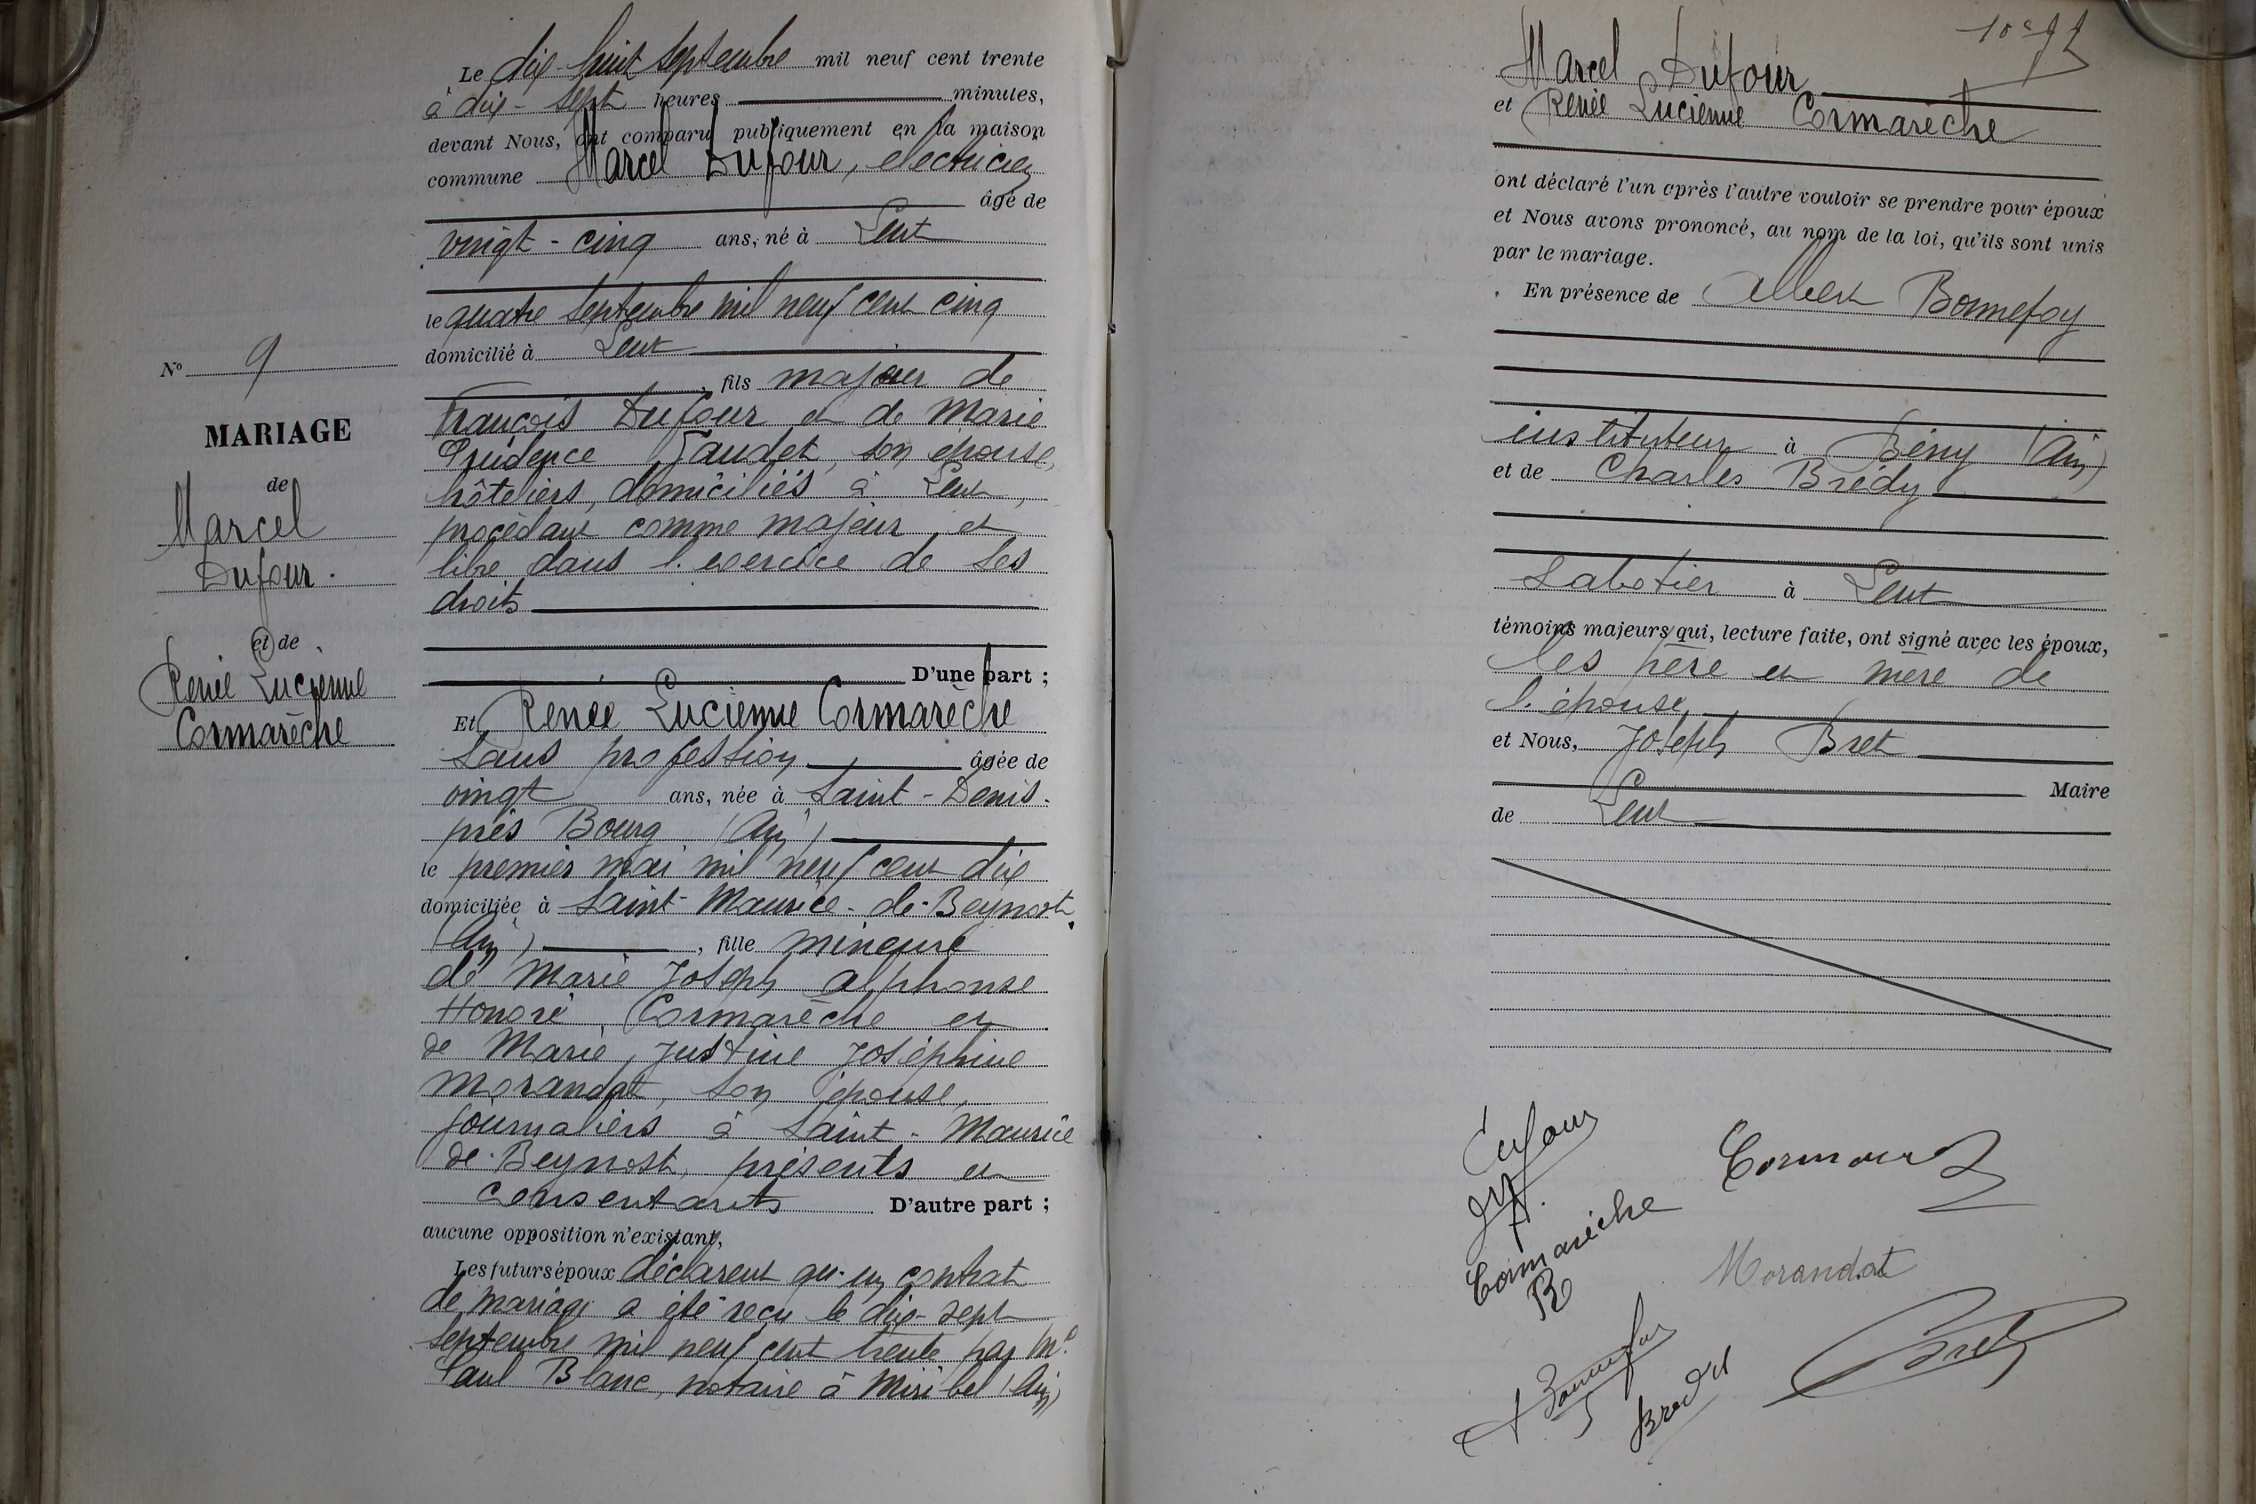 Le dix-huit septembre mil neuf cent trente
à dix-sept heures minutes,
devant Nous, ont comparu publiquement en la maison
commune Marcel Dufour, électricien
âgé de
vingt-cinq ans, né à Lent
le quatre septembre mil neuf cent cinq
domicilié à Lent
, fils majeur de
François Dufour et de Marie
Prudence Gaudet, son épouse,
hôteliers, domiciliés à Lent,
procédant comme majeur et
libre dans l'exercice de ses
droits
D'une part ;
Et Renée Lucienne Cormarèche
sans profession âgée de
vingt ans, née à Saint-Denis-
près Bourg (Ain)
le premier mai mil neuf cent dix
domiciliée à Saint-Maurice-de-Beynost
(Ain) , fille mineure
de Marie Joseph Alphonse
Honoré Cormarèche et
de Marie, Justine Joséphine
Morandat, son épouse,
journaliers à Saint-Maurice
de-Beynost, présents et
consentants D'autre part ;
aucune opposition n'existant,
Les futurs époux déclarent qu'un contrat
de mariage a été reçu le dix-sept
septembre mil neuf cent trente par Me
Paul Blanc, notaire à Miribel (Ain)
No 9
MARIAGE
de
Marcel
Dufour.
et de
Renée Lucienne
Cormarèche
Marcel Dufour
et Renée Lucienne Cormarèche
ont déclaré l'un après l'autre vouloir se prendre pour époux
et Nous avons prononcé, au nom de la loi, qu'ils sont unis
par le mariage.
En présence de Albert Bonnefoy
instituteur à Bény (Ain)
et de Charles Brédy
sabotier à Lent
témoins majeurs qui, lecture faite, ont signé avec les époux,
les père et mère de
l'épouse,
et Nous, Joseph Bret
Maire
de Lent
Dufour
Cormarèche
R
Morandat
A Bonnefoy
Bret